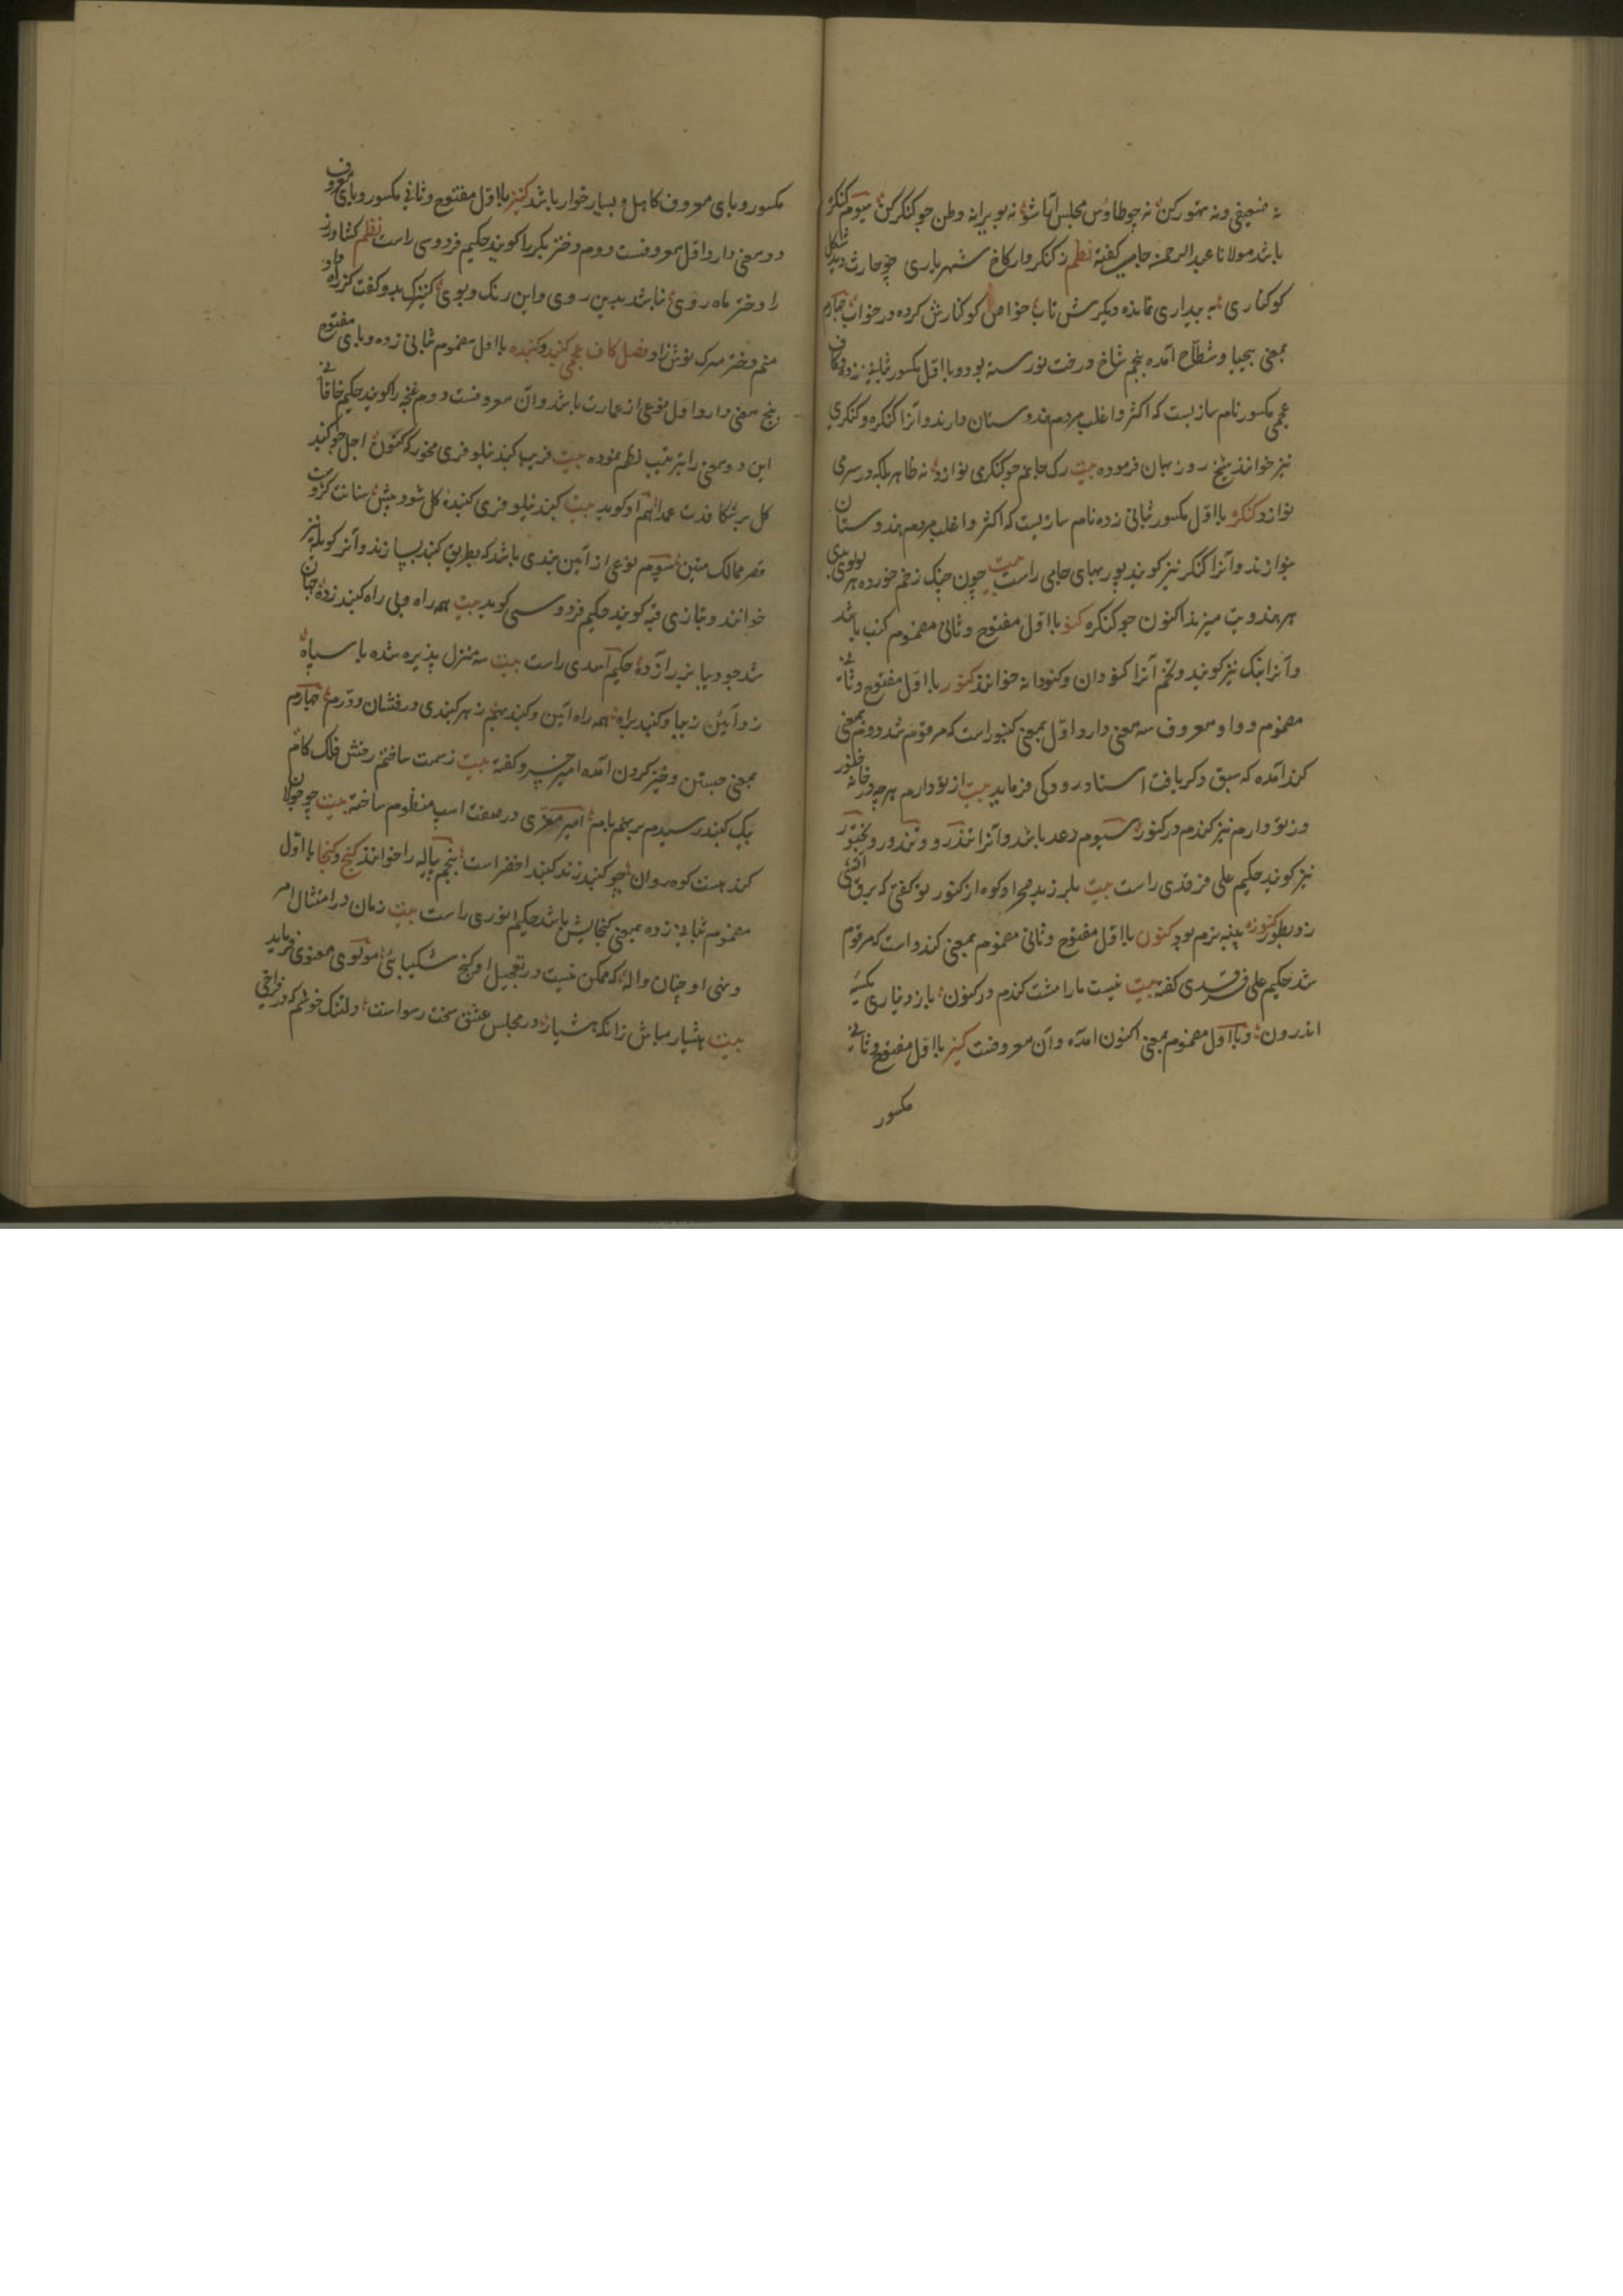 نه ضعیفی ونه متهورکن نه چو طاوس مجلس آرا شو نه بویرانه وطن چو کنگر کن سیوم کنگر
باشد مولانا عبدالرحمن جامی گفته نظم ز کنگر وار کاخ شهریاری چو حارث دیدکل شکل
کوکناری به بیداری نمانده دیکرش تاب خواص کوکنارش کرده در خواب چهارم
بمعنی بیحیا وشطاح آمده پنجم شاخ درخت نورسته بود وبا اول مکسور بثانی زده وکاف
عجمی مکسور نام سازیست که اکثر واغلب مردم هندوستان دارند وآنرا کنگره وکنگری
نیز خوانند شیخ روزبهان فرموده بیت رک جانم چو کنگری نوازد نه ظاهر بلکه در سرمی
نوازد کنگر با اول مکسور بثانی زده نام سازیست که اکثر واغلب مردم هندوستان
بنوازند وآنرا کنگر نیز کویند پوربهای جامی راست بیت چون چنک زخم خورده هر لولوی بدی
هر هندویت میزند اکنون چو کنگره کنو با اول مفتوح وثانی مضموم کنب باشد
وآنرا بنک نیز کویند وتخم آنرا کنودان وکنودانه خوانند کنور با اول مفتوح وثانی
مضموم وواو معروف سه معنی دارد اول بمعنی کنبور است که مرقوم شد دوم بمعنی
کند آمده که سبق ذکر یافت استاد رودکی فرماید بیت از تو دارم هرچه در خانه خنور
وز تو دارم نیز کندم در کنور سیوم رعد باشد وآنرا تندر و وتندور وبختور
نیز کویند حکیم علی فرقدی راست بیت بلرزید صحرا وکوه از کنور تو کفتی که برق آتشی
زد بطور کنوزه پنبه بزم بود کنون با اول مفتوح وثانی مضموم بمعنی کندو است که مرقوم
شد حکیم علی فرقدی کفته بیت نیست ما را مشت کندم در کنون باز دیناری بکیسه
اندرون وبا اول مضموم بمعنی اکنون آمده وآن معروفست کنیز با اول مفتوح وثانی
مکسور
مکسور وبای معروف کاهل وبسیار خوار باشد کنیز با اول مفتوح وثانی مکسور وبای معروف
دو معنی دارد اول معروفست دوم دختر بکر را کویند حکیم فردوسی راست نظم کشاورز
را دختر ماه روی نباشد بدین روی واین رنک وبوی کنیزک بدو کفت کز راه داد
منم دختر مهرک نوش زاد فصل کاف عجمی کنبد وکنبده با اول مضموم بثانی زده وبای مفتوح
پنج معنی دارد اول نوعی از عمارت باشد وآن معروفست دوم غنچه را کویند حکیم خاقانی
این دو معنی را بترتیب نظم نموده بیت فریب کنبد نیلوفری مخور که کنون اجل چو کنبد
کل بر شکافدت عمدا هم او کوید بیت کنبد نیلوفری کنبده کل شود پیش سنانت کزوست
قصر ممالک متین سیوم نوعی از آئین بندی باشد که بطریق کنبد بسازند وآنرا کوبله نیز
خوانند وبتازی قبه کویند حکیم فردوسی کوید بیت همه راه وبی راه کنبد زده جهان
شد چو دیبا بزر آزده حکیم اسدی راست بیت سه منزل پذیره شده با سپاه
زد آیین زیبا وکنبد براه همه راه آیین وکنبد بهم ز هر کنبدی درفشان ودرم چهارم
بمعنی جستن وخیز کردن آمده امیر خسرو کفته بیت زسمت ساختم رخش فلک کام
بیک کنبد رسیدم بر نهم بام امیر معزی در صفت اسپ منظوم ساخته بیت چو جولان
کند هست کوه روان چو کنبد زند کنبد اخضر است پنجم پیاله را خوانند کنج وکنجا با اول
مضموم بثانی زده بمعنی کنجایش باشد حکیم انوری راست بیت زمان در امتثال امر
ونهی او چنان واله که ممکن نیست در تعجیل او کنج شکیبائی مولوی معنوی فرماید
بیت هشیار مباش زانکه هشیار در مجلس عشق سخت رسواست دلتنک خوشم که در فراخی